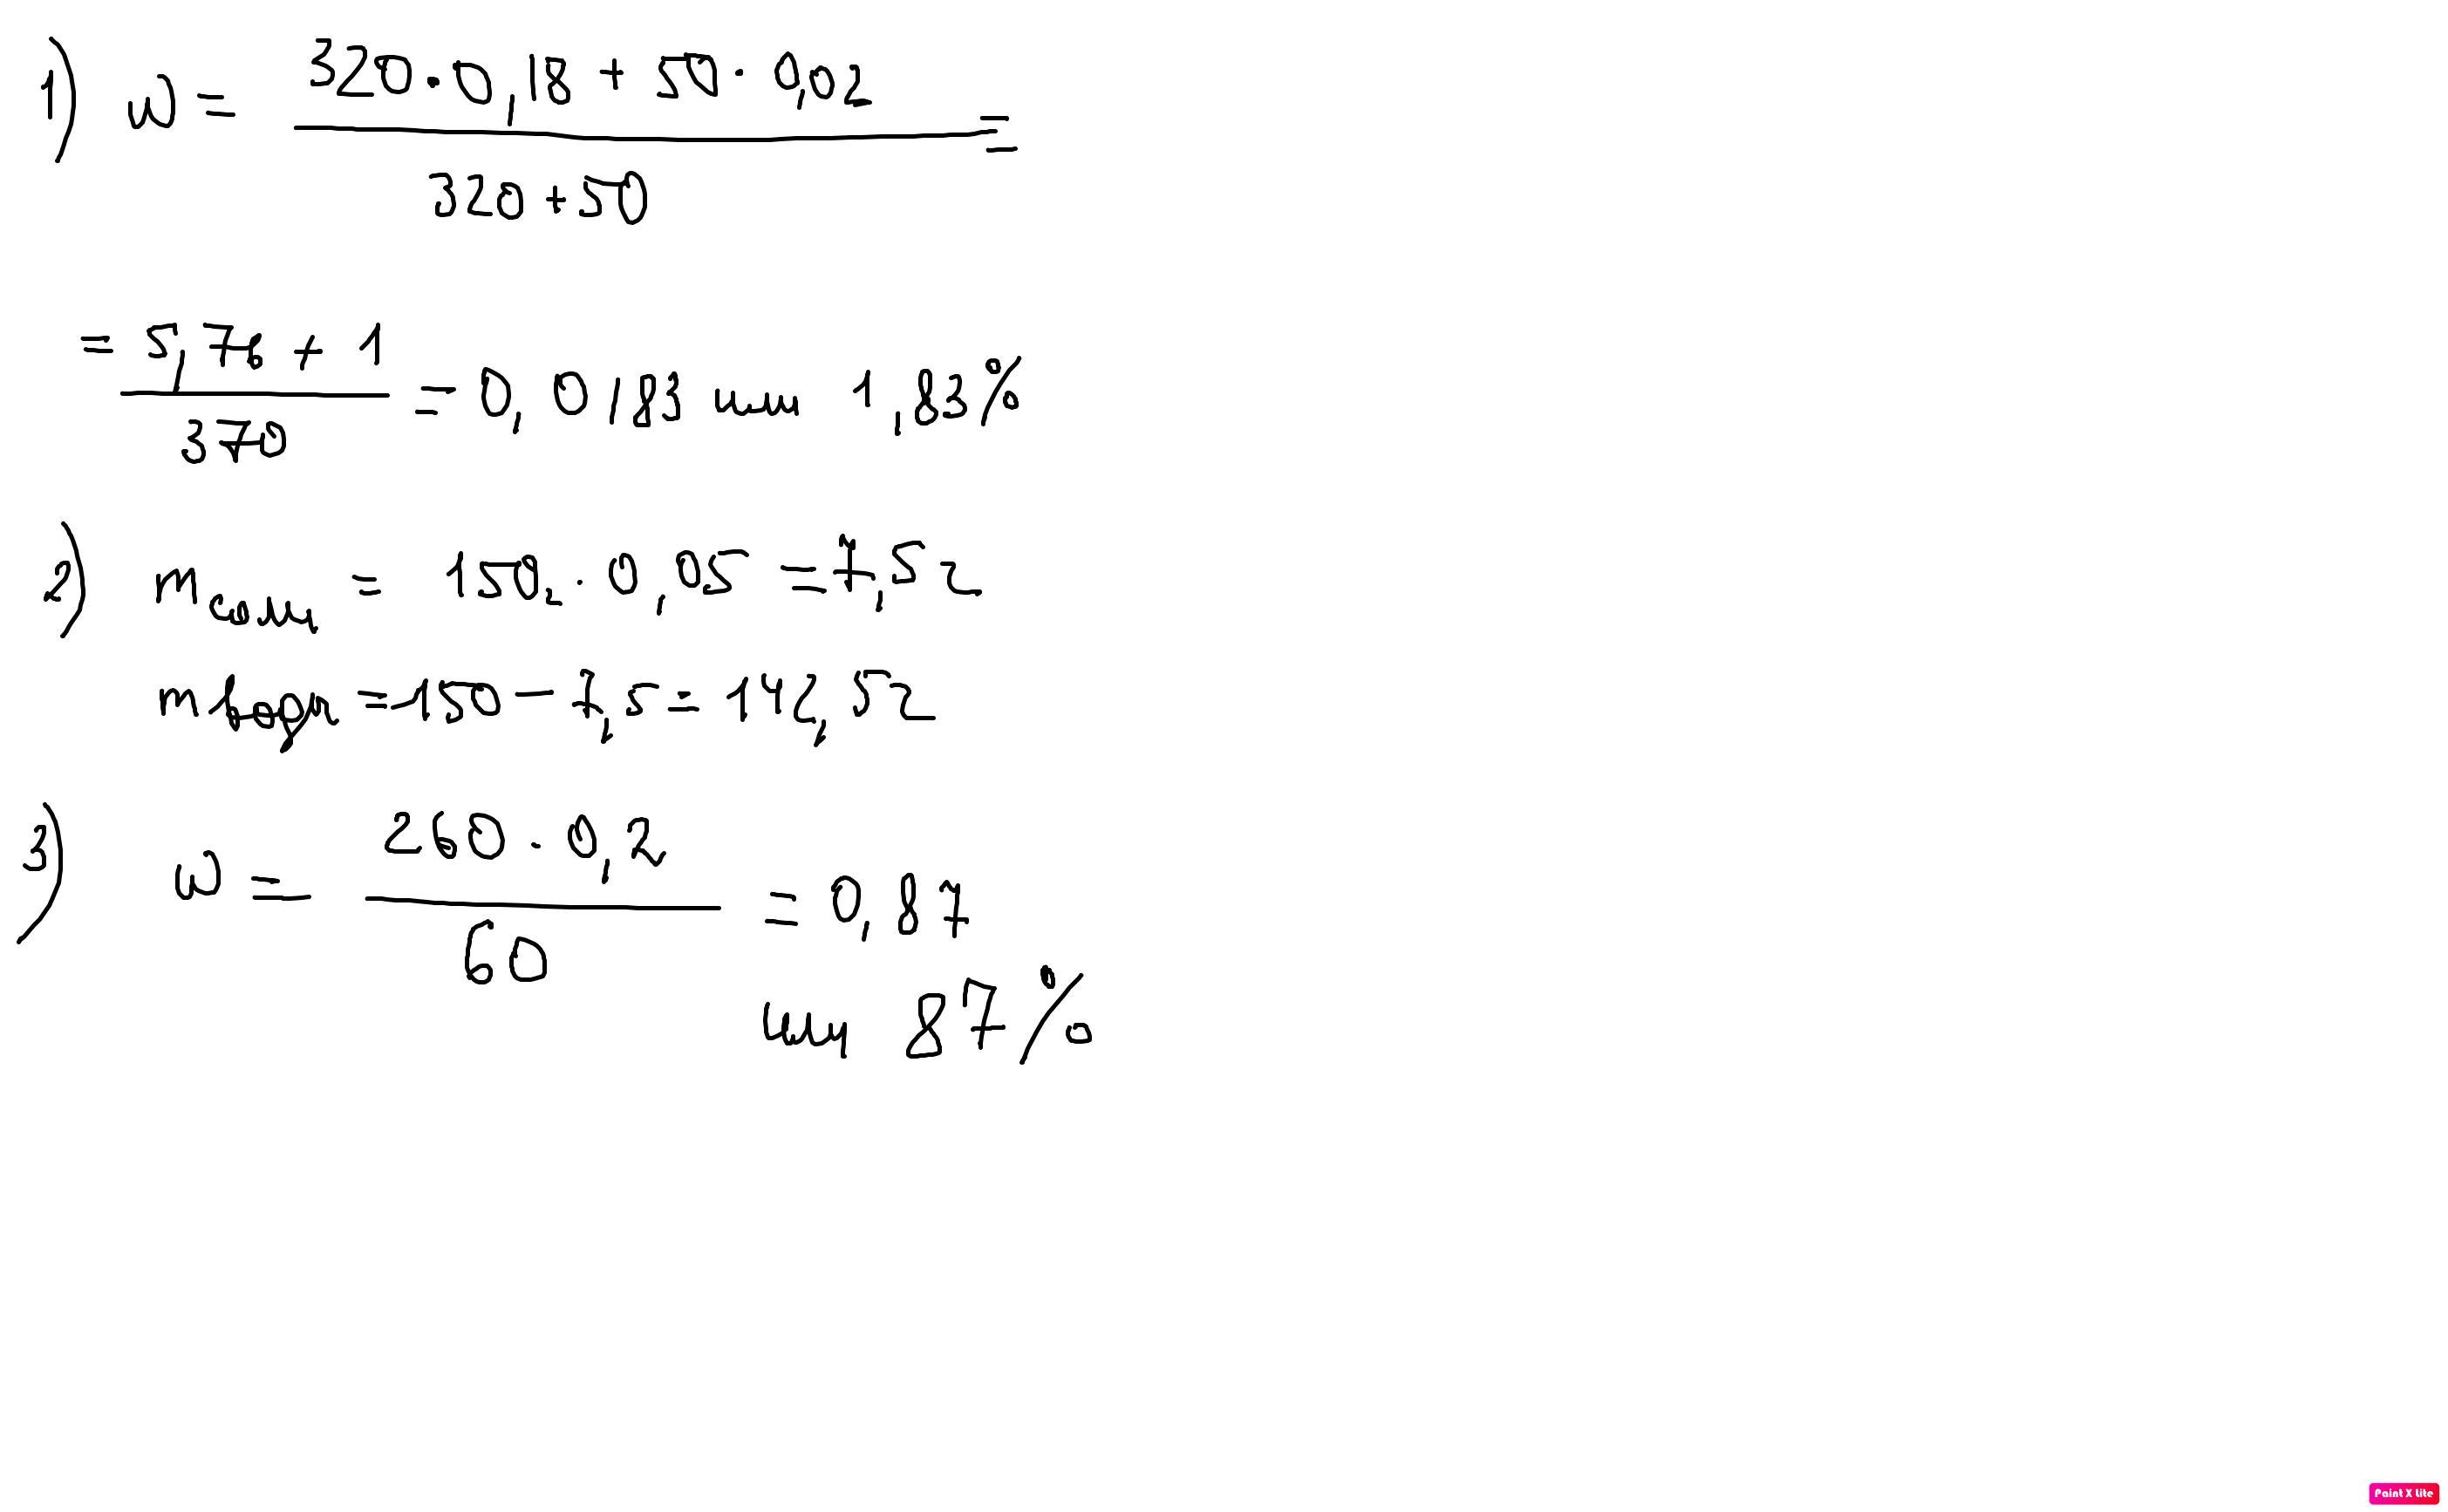 1) ω = (320·0,18 + 50·0,02) / (320+50) =
= (5,76 + 1) / 370 = 0,0183 или 1,83%
2) m соли = 150г · 0,05 = 7,5г
m воды = 150 - 7,5 = 142,5г
3) ω = (260·0,2) / 60 = 0,87
или 87%
Paint X Lite